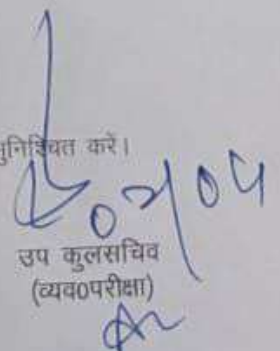 सुनिश्चित करें।
उप कुलसचिव
(व्यव०परीक्षा)